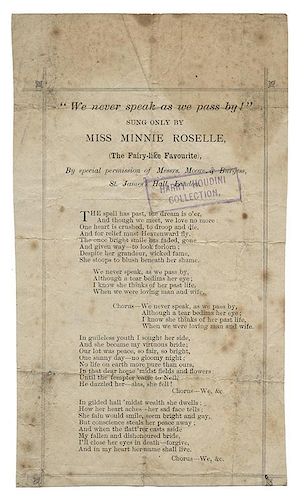 "We never speak as we pass by!"
SUNG ONLY BY
MISS MINNIE ROSELLE,
(The Fairy-like Favourite),
By special permission of Messrs. Moore & Burgess,
St. James's Hall, London.
HARRY HOUDINI
COLLECTION.
THE spell has past, the dream is o'er,
And though we meet, we love no more:
One heart is crushed, to droop and die
And for relief must Heavenward fly.
The once bright smile has faded, gone
And given way—to look forlorn;
Despite her grandeur, wicked fame,
She stoops to blush beneath her shame.
We never speak, as we pass by,
Although a tear bedims her eye;
I know she thinks of her past life,
When we were loving man and wife.
Chorus—We never speak, as we pass by,
Although a tear bedims her eye;
I know she thinks of her past life,
When we were loving man and wife.
In guileless youth I sought her side,
And she became my virtuous bride;
Our lot was peace, so fair, so bright,
One sunny day—no gloomy night;
No life on earth more pure than ours,
In that dear home 'midst fields and flowers:
Until the tempter came to Nell,
He dazzled her—alas, she fell!
Chorus—We, &c.
In gilded hall 'midst wealth she dwells;
How her heart aches—her sad face tells;
She fain would smile, seem bright and gay,
But conscience steals her peace away;
And when the flatt'rer casts aside
My fallen and dishonoured bride,
I'll close her eyes in death—forgive,
And in my heart her name shall live.
Chorus—We, &c.